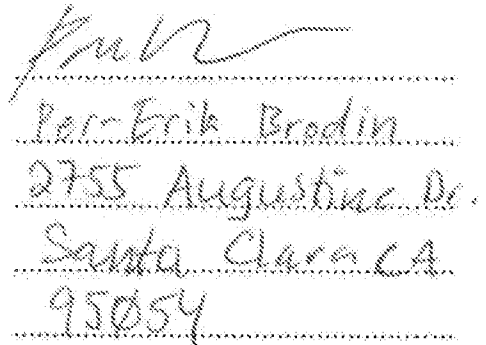 Per-Erik Brodin
2755 Augustine Dr.
Santa Clara CA
95054